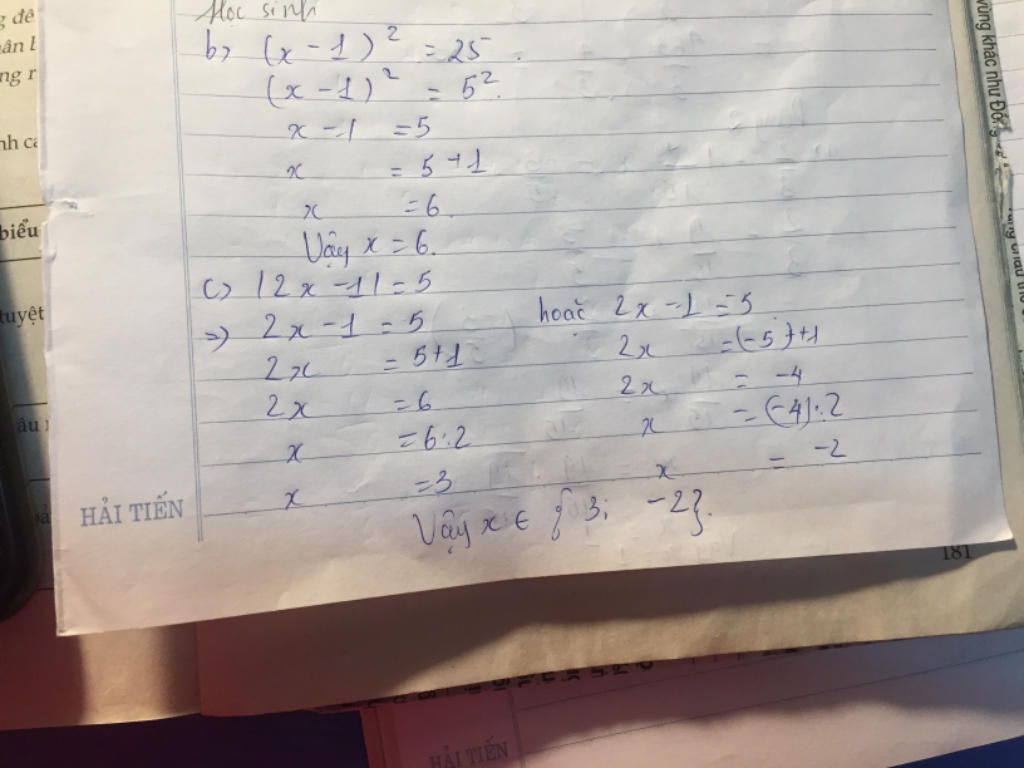 Học sinh
b) (x - 1)² = 25.
(x - 1)² = 5².
x - 1 = 5
x = 5 + 1
x = 6.
Vậy x = 6.
c) |2x - 1| = 5
=) 2x - 1 = 5 hoặc 2x - 1 = -5
2x = 5+1 2x = (-5)+1
2x = 6 2x = -4
x = 6:2 x = (-4):2
x = 3 x = -2
Vậy x ∈ {3; -2}.
HẢI TIẾN
181
HẢI TIẾN
g đề
ân b
ng r
biểu
tuyệt
vùng khác như Đô